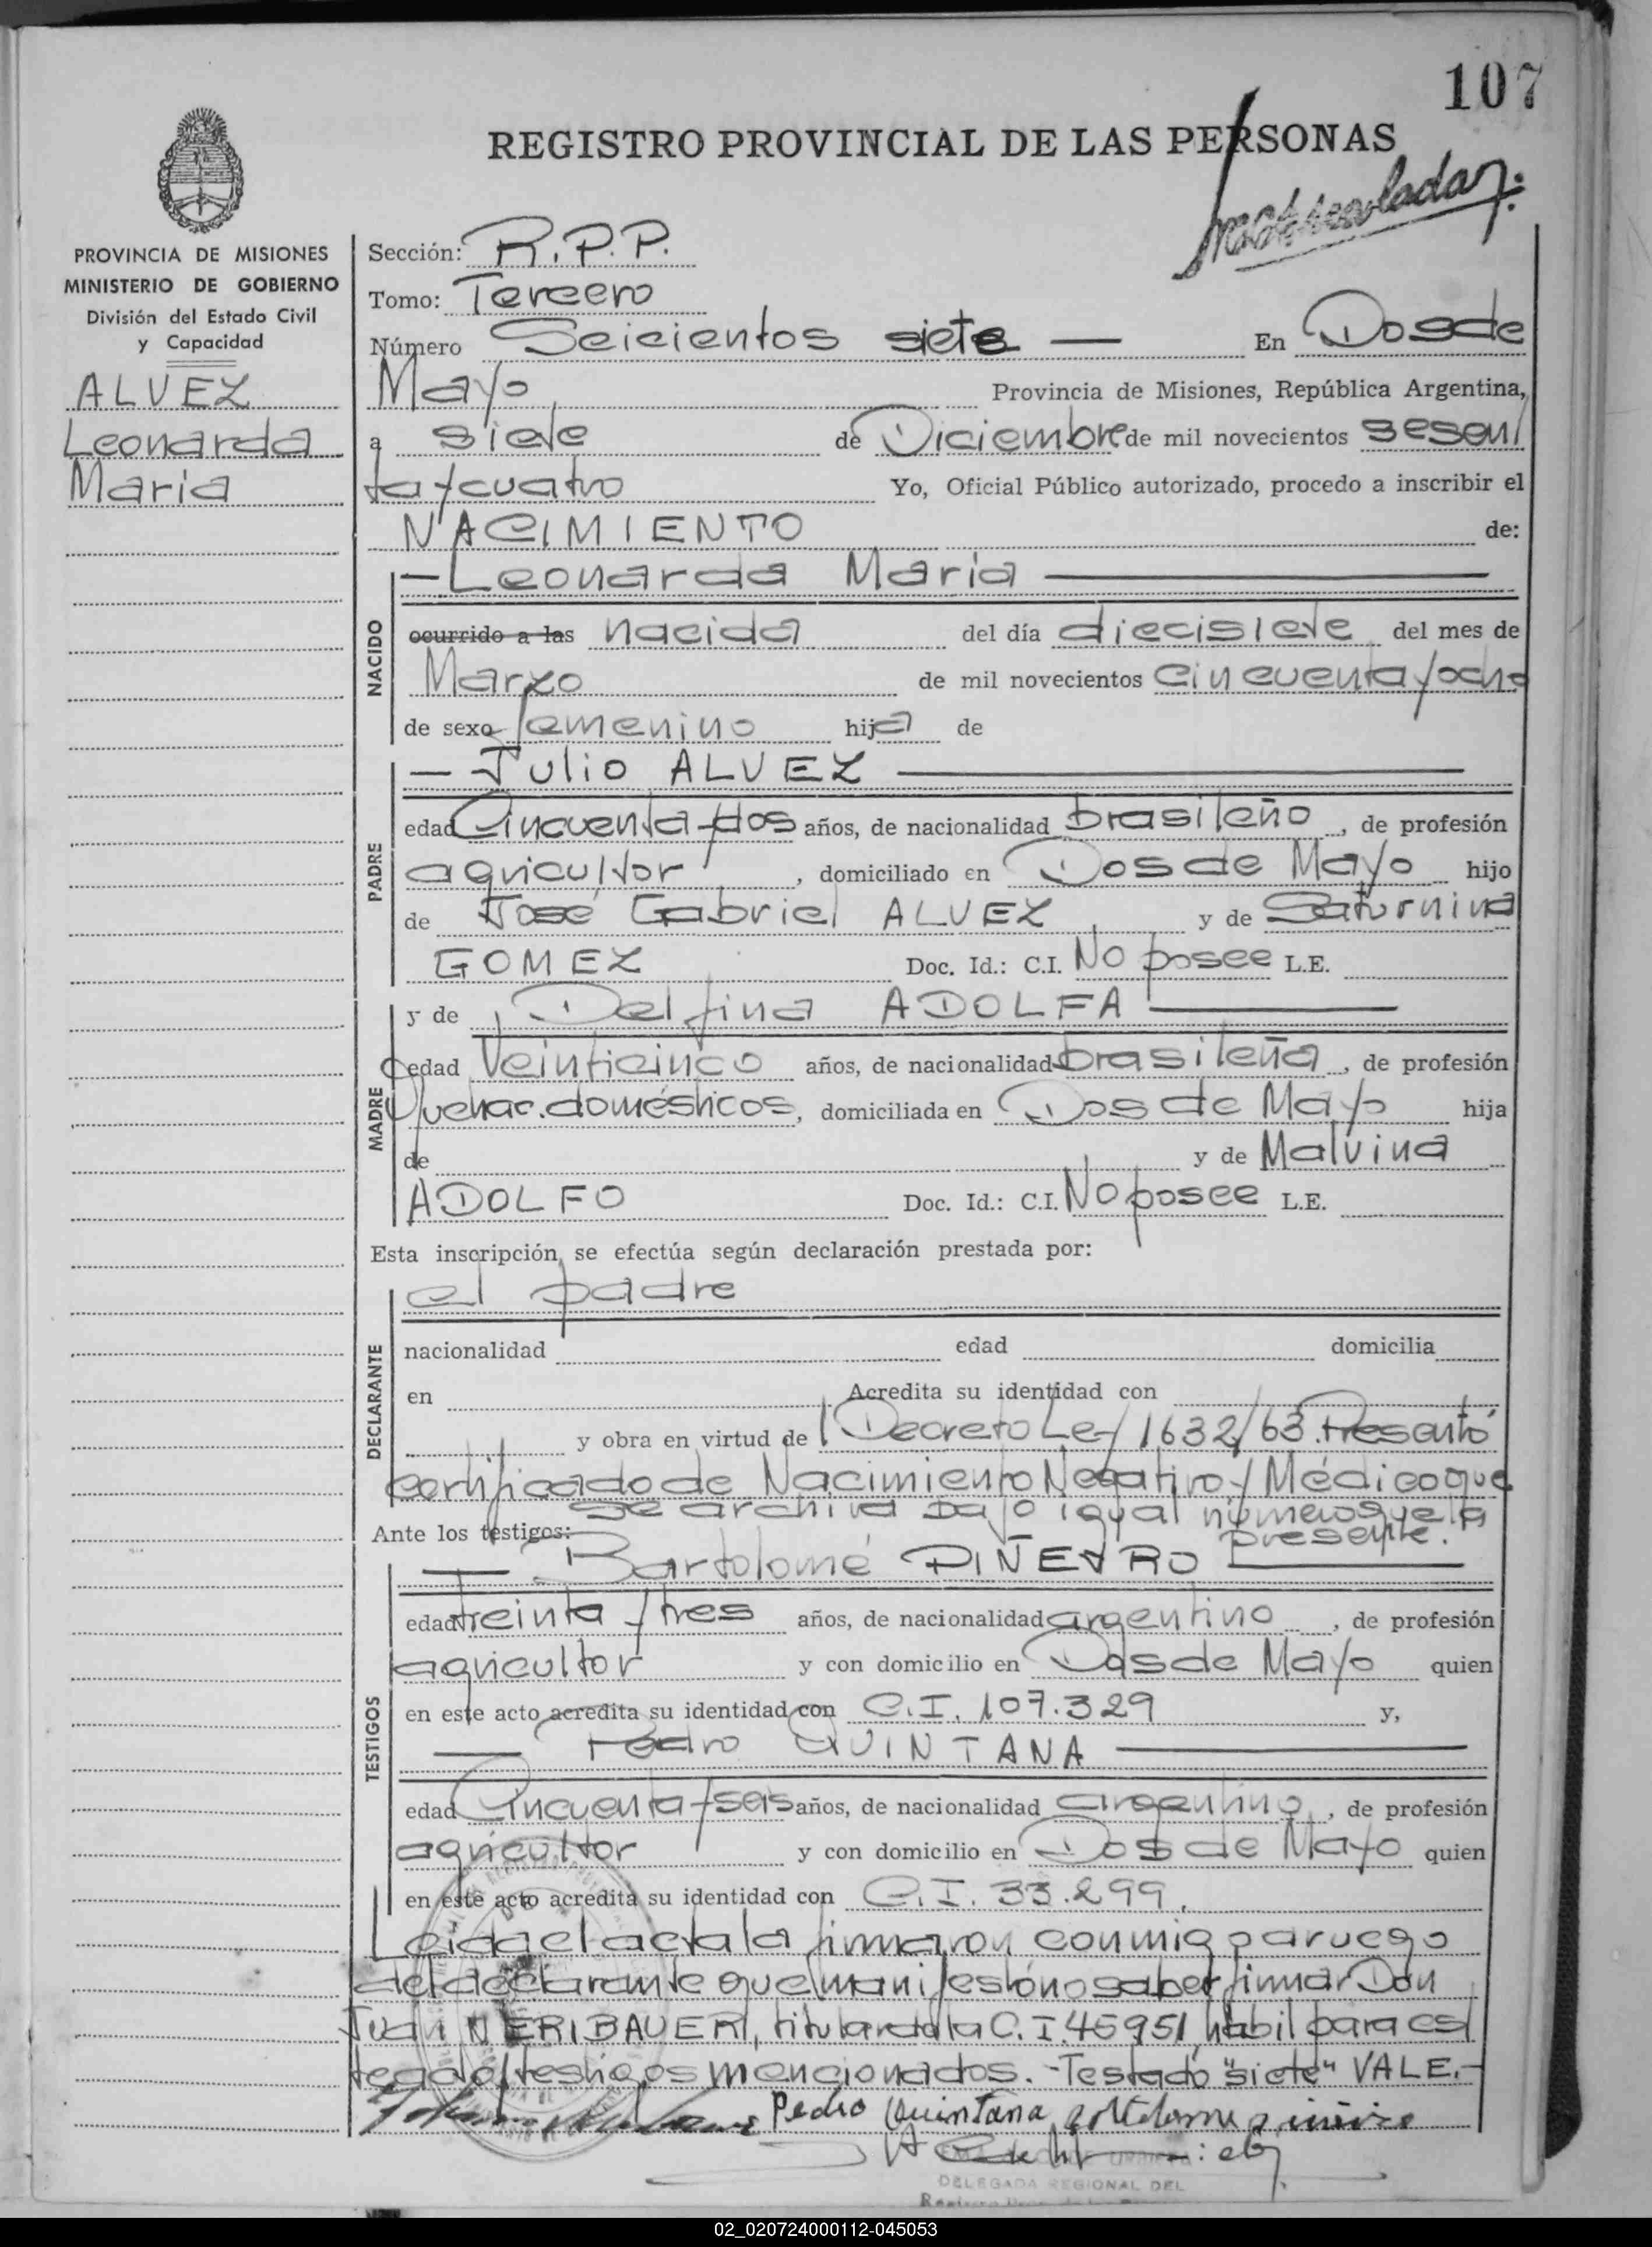 107
REGISTRO PROVINCIAL DE LAS PERSONAS
PROVINCIA DE MISIONES
MINISTERIO DE GOBIERNO
División del Estado Civil
y Capacidad
ALVEZ
Leonarda
Maria
Sección: R.P.P.
Tomo: Tercero
Número Seicientos siete — En Dos de
Mayo Provincia de Misiones, República Argentina,
a siete de Diciembre de mil novecientos sesen/
ta y cuatro Yo, Oficial Público autorizado, procedo a inscribir el
NACIMIENTO de:
NACIDO
— Leonarda Maria —
ocurrido a las nacida del día diecisiete del mes de
Marzo de mil novecientos cincuenta y ocho
de sexo femenino hija de
PADRE
— Julio ALVEZ —
edad Cincuenta y dos años, de nacionalidad brasileño, de profesión
agricultor, domiciliado en Dos de Mayo hijo
de José Gabriel ALVEZ y de Saturnina
GOMEZ Doc. Id.: C.I. No posee L.E.
MADRE
y de Delfina ADOLFA —
edad Veinticinco años, de nacionalidad brasileña, de profesión
Quehac. domésticos, domiciliada en Dos de Mayo hija
de y de Malvina
ADOLFO Doc. Id.: C.I. No posee L.E.
Esta inscripción, se efectúa según declaración prestada por:
DECLARANTE
el padre
nacionalidad edad domicilia
en Acredita su identidad con
y obra en virtud de Decreto Ley 1632/63. Presentó
certificado de Nacimiento Negativo y Médico que
se archiva bajo igual número que la
presente.
Ante los testigos:
TESTIGOS
— Bartolomé PIÑEYRO —
edad treinta y tres años, de nacionalidad argentino, de profesión
agricultor y con domicilio en Dos de Mayo quien
en este acto acredita su identidad con C.I. 107.329 y,
— Pedro QUINTANA —
edad Cincuenta y seis años, de nacionalidad argentino, de profesión
agricultor y con domicilio en Dos de Mayo quien
en este acto acredita su identidad con C.I. 33.299,
Leida el acta la firmaron conmigo a ruego
del declarante que manifestó no saber firmar Don
Juan NERIBAUER, titular de la C.I. 45951, hábil para es/
te acto y testigos mencionados. - Testado "siete" VALE.-
Pedro Quintana
DELEGADA REGIONAL DEL
02_020724000112-045053